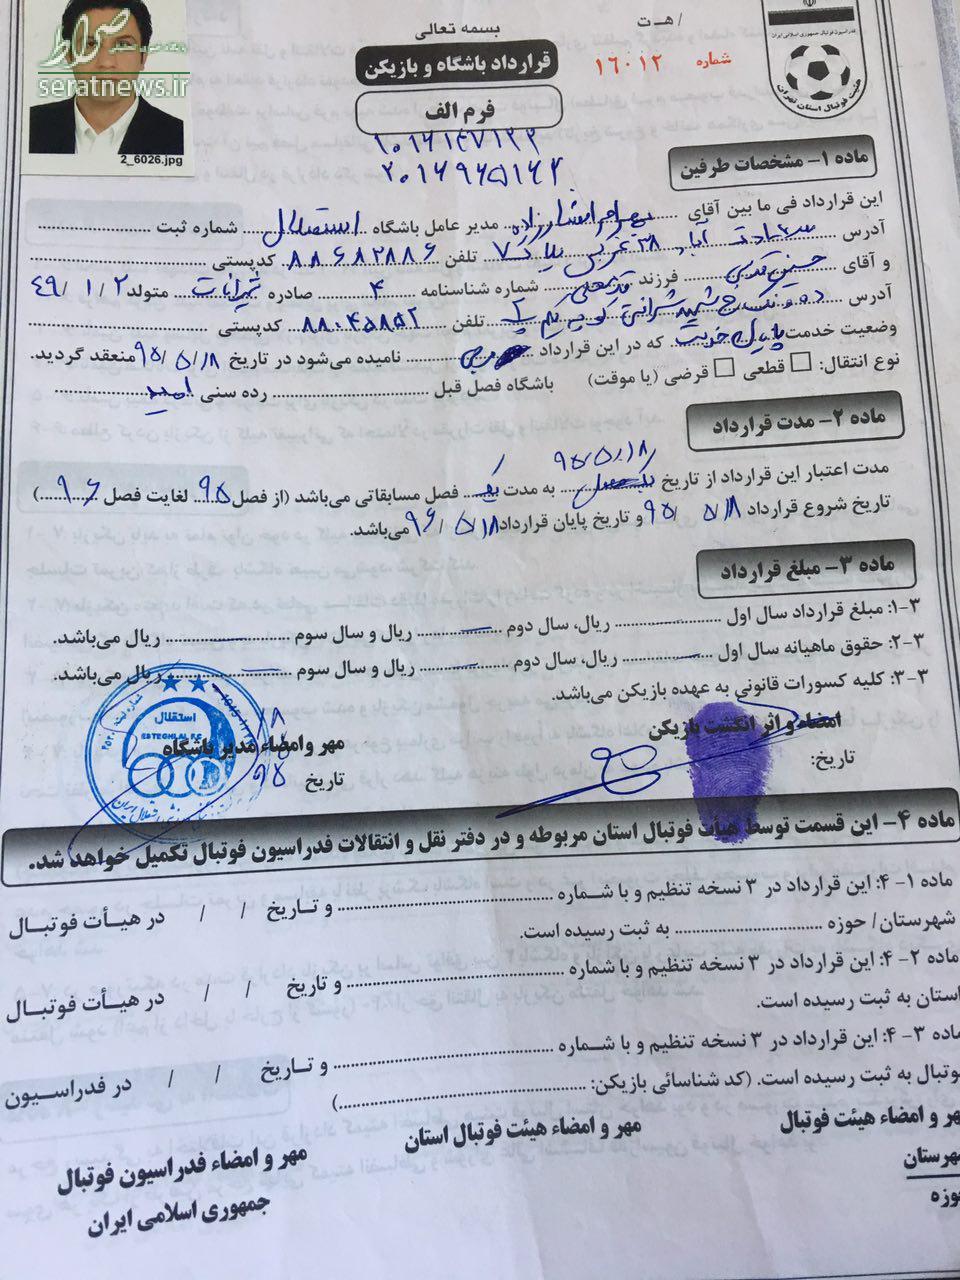 بسمه تعالی
/هـ ت
فدراسیون فوتبال جمهوری اسلامی ایران
هیئت فوتبال استان تهران
صراط
seratnews.ir
2_6026.jpg
قرارداد باشگاه و بازیکن
شماره ۱۶۰۱۲
فرم الف
ماده ۱- مشخصات طرفین
این قرارداد فی ما بین آقای .......... مدیر عامل باشگاه استقلال شماره ثبت ..........
آدرس سعادت آباد تلفن ۸۸۶۸۲۸۸۶ کدپستی ..........
و آقای .......... فرزند .......... شماره شناسنامه ۴ صادره .......... متولد ۴۹/۱/۲
آدرس .......... تلفن ۸۸۰۴۵۸۵۲ کدپستی ..........
وضعیت خدمت پایان خدمت که در این قرارداد مربی نامیده می‌شود در تاریخ ۹۵/۵/۱۸ منعقد گردید.
نوع انتقال: □ قطعی □ قرضی (یا موقت) باشگاه فصل قبل .......... رده سنی امید
ماده ۲- مدت قرارداد
۹۵/۵/۱۸
مدت اعتبار این قرارداد از تاریخ یک فصل به مدت یک فصل مسابقاتی می‌باشد (از فصل ۹۵ لغایت فصل ۹۶)
تاریخ شروع قرارداد ۹۵/۵/۱۸ و تاریخ پایان قرارداد ۹۶/۵/۱۸ می‌باشد.
ماده ۳- مبلغ قرارداد
۳-۱: مبلغ قرارداد سال اول .......... ریال، سال دوم .......... ریال و سال سوم .......... ریال می‌باشد.
۳-۲: حقوق ماهیانه سال اول .......... ریال، سال دوم .......... ریال و سال سوم .......... ریال می‌باشد.
۳-۳: کلیه کسورات قانونی به عهده بازیکن می‌باشد.
امضاء و اثر انگشت بازیکن
مهر و امضاء مدیر باشگاه
تاریخ:
تاریخ ۹۵
استقلال
ESTEGHLAL F.C
ماده ۴- این قسمت توسط هیأت فوتبال استان مربوطه و در دفتر نقل و انتقالات فدراسیون فوتبال تکمیل خواهد شد.
ماده ۱-۴: این قرارداد در ۳ نسخه تنظیم و با شماره .......... و تاریخ / / در هیـأت فوتبال
شهرستان/ حوزه .......... به ثبت رسیده است.
ماده ۲-۴: این قرارداد در ۳ نسخه تنظیم و با شماره .......... و تاریخ / / در هیـأت فوتبال
استان به ثبت رسیده است.
ماده ۳-۴: این قرارداد در ۳ نسخه تنظیم و با شماره .......... و تاریخ / / در فدراسیون
وتبال به ثبت رسیده است. (کد شناسائی بازیکن: ..........)
مهر و امضاء هیئت فوتبال
هرستان
وزه
مهر و امضاء هیئت فوتبال استان
مهر و امضاء فدراسیون فوتبال
جمهوری اسلامی ایران